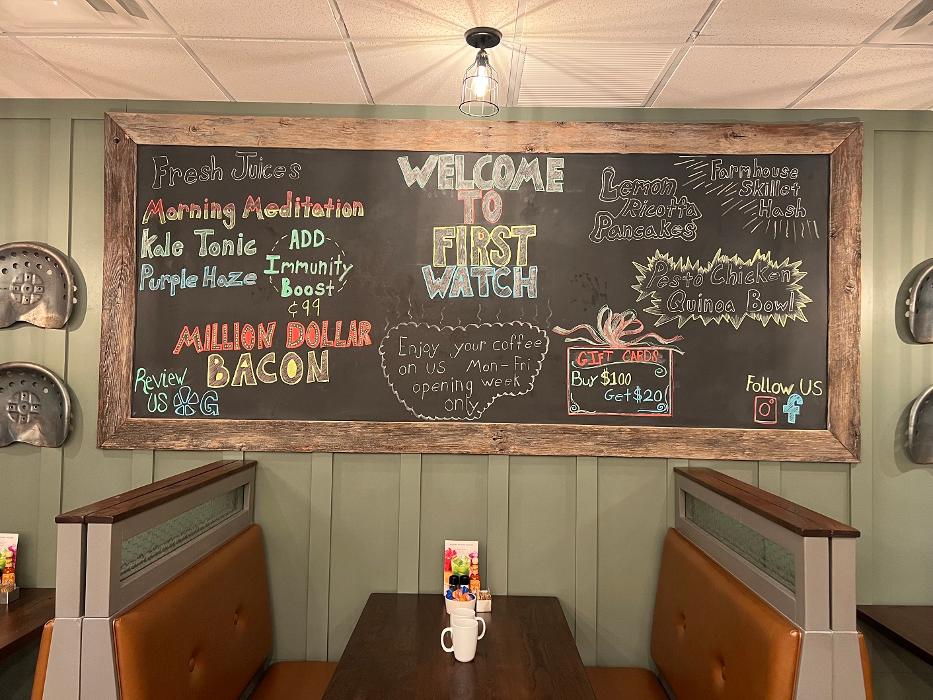 Fresh Juices
Morning Meditation
Kale Tonic
Purple Haze
ADD
Immunity
Boost
¢99
MILLION DOLLAR
BACON
Review
US G
WELCOME
TO
FIRST
WATCH
Enjoy your coffee
on us Mon-Fri
opening week
only
Lemon
Ricotta
Pancakes
Farmhouse
Skillet
Hash
Pesto Chicken
Quinoa Bowl
GIFT CARDS
Buy $100
Get $20!
Follow US
f